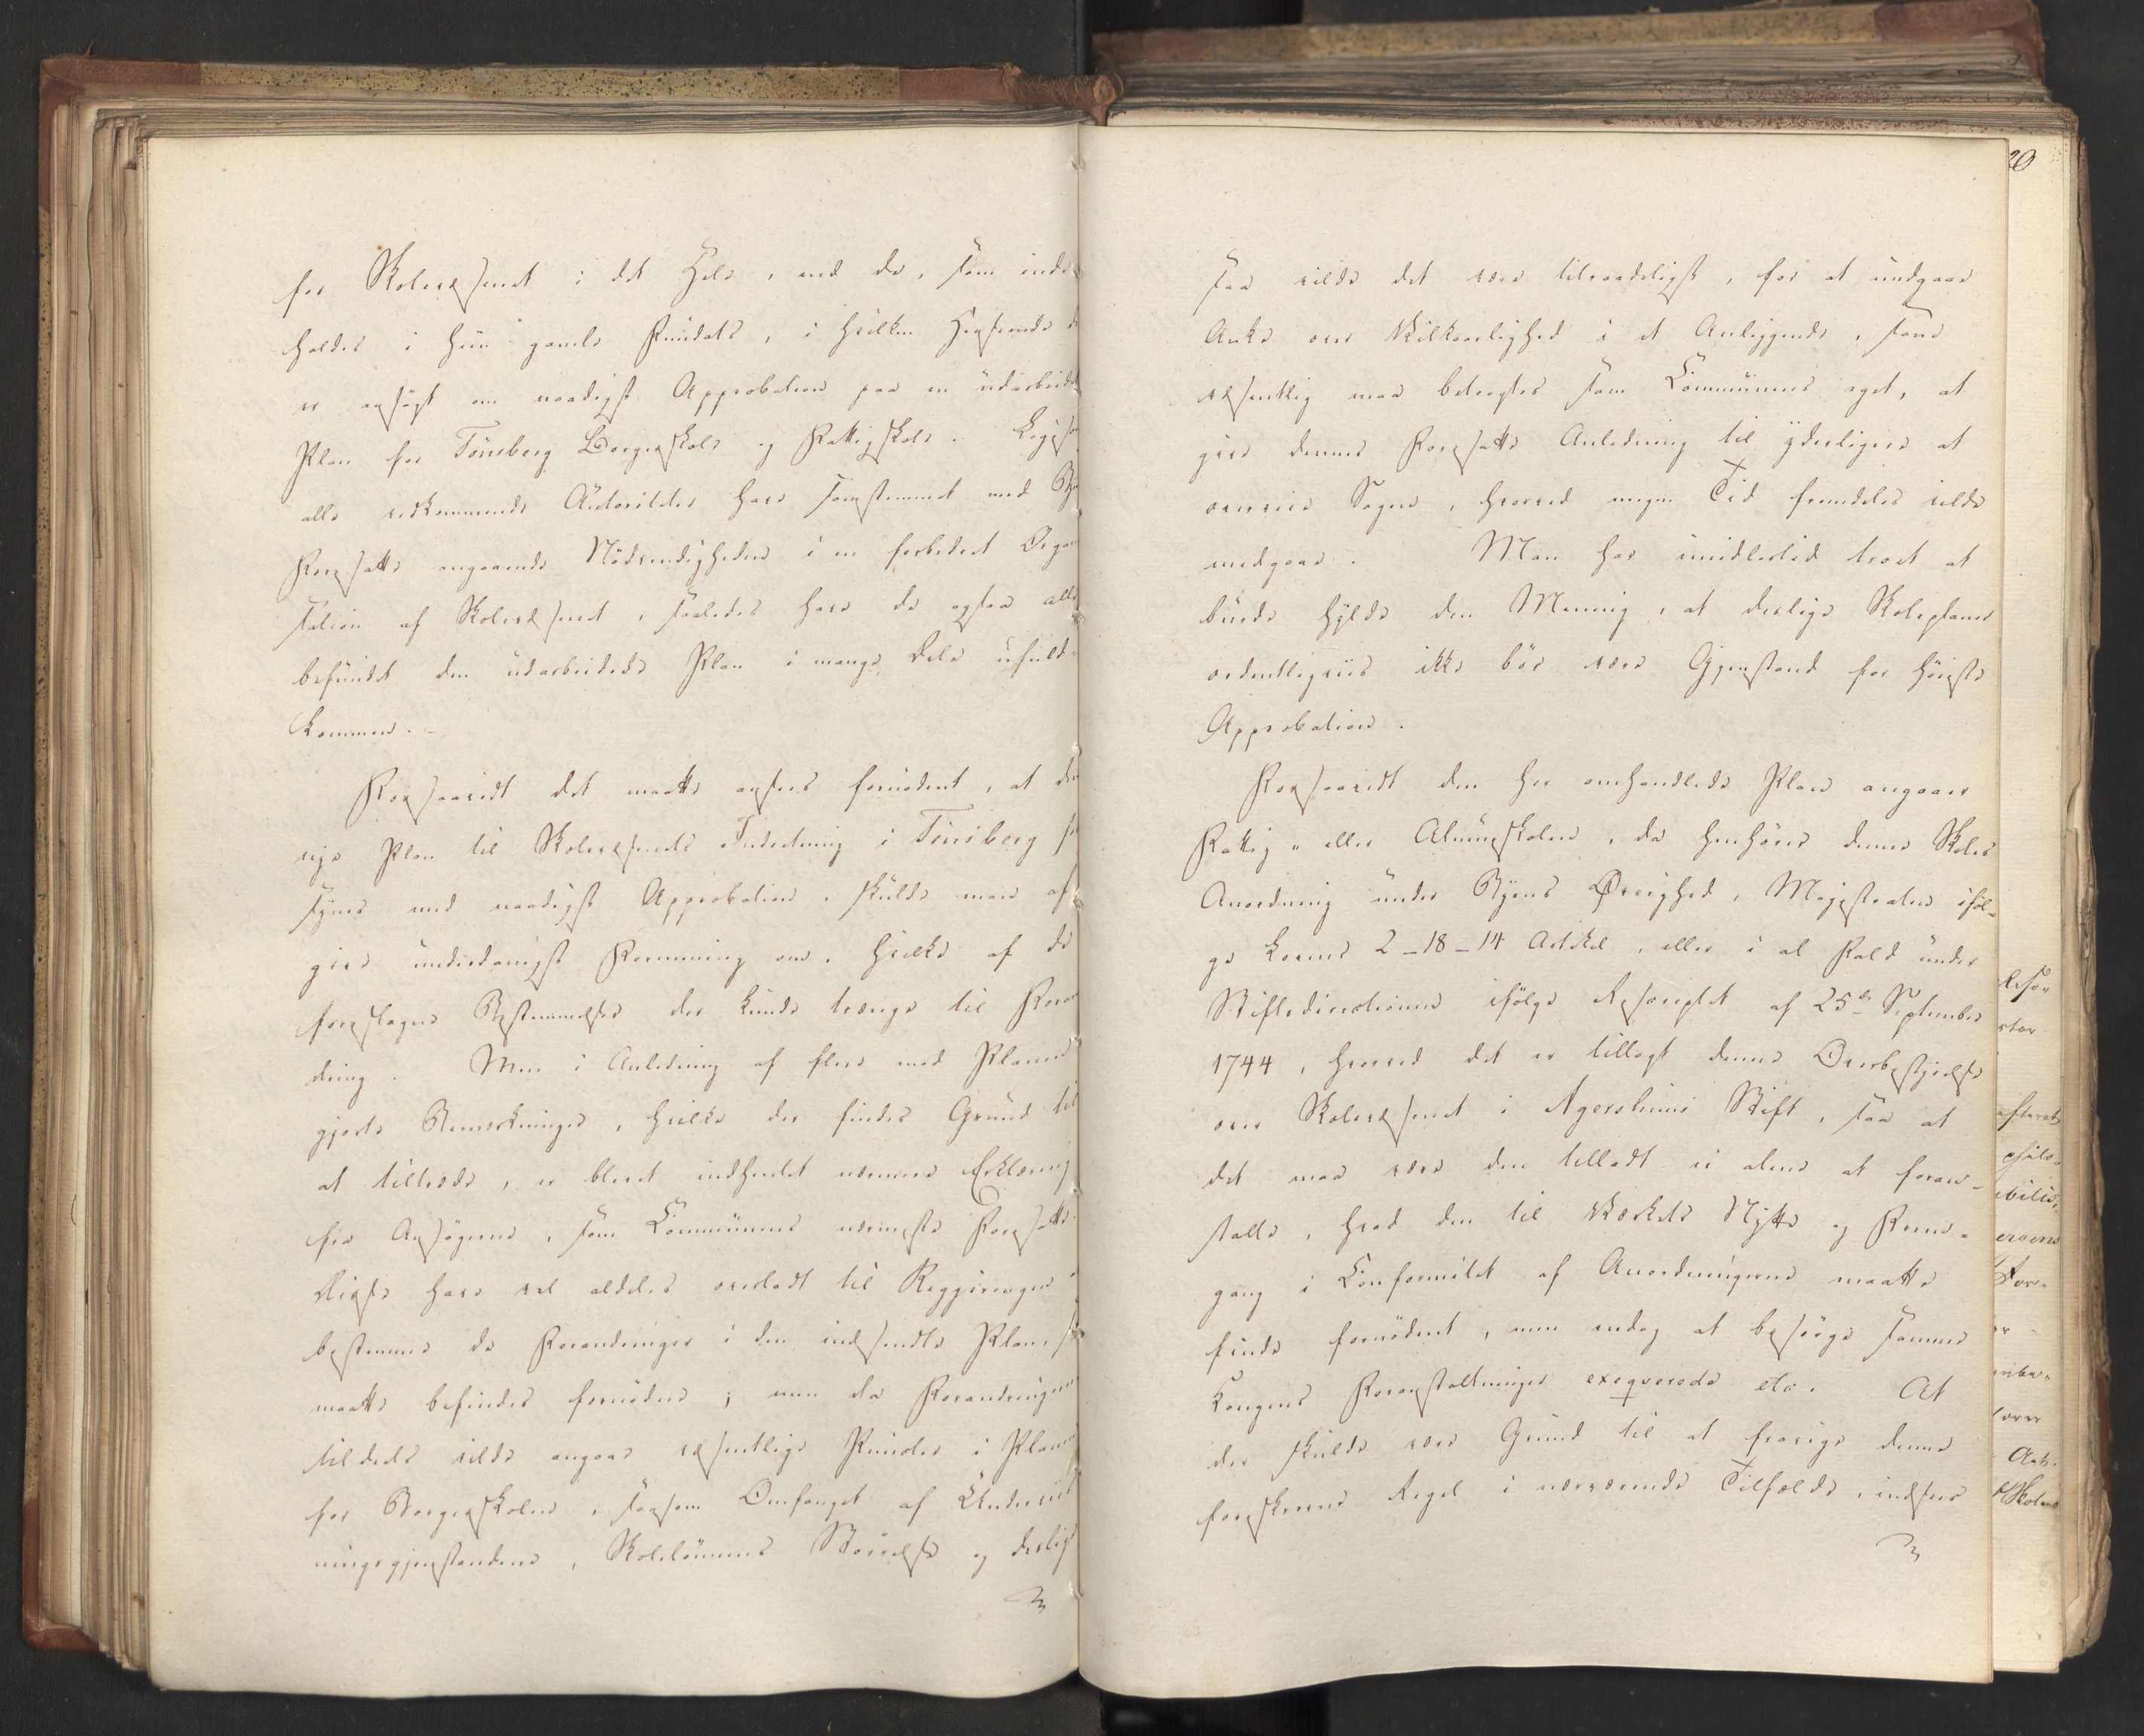 for Skolevæsenet i det Hele, end de, som inde-
holdes i hiin gamle Fundats, i hvilken Henseende d
er ansøgt om naadigst Approbation paa en udarbeidet
Plan for Tönsberg Borgerskole og Fattigskole. Ligesom
alle vedkommende Autoriteter have samstemmet med By
Foresatte angaaende Nödvendigheden i en forbedret Organi
sation af Skolevæsenet, saaledes have de ogsaa alle
befundet den udarbeidede Plan i mange Dele ufuld-
kommen. -
Forsaavidt det maatte ansees fornödent, at den
nye Plan til Skolevæsenets Indretning i Tönsberg for
synes med naadigst Approbation, skulde man af
give underdanigst Formening om, hvilke af de
foreslagne Bestemmelser der kunde trænge til Foran
dring. Men i Anledning af flere mod Planen
gjorte Bemærkninger, hvilke der findes Grund til
at tiltræde, er blevet indhentet nærmere Erklæring
fra Ansøgerne, som Communens nærmeste Foresatte.
Disse have vel aldeles overladt til Regjeringen
bestemme de Forandringer i den indsendte Plan, s
maatte befindes fornödne; men da Forandringerne
tildeels vilde angaae væsentlige Puncter i Planen
for Borgerskolen, saasom Omfanget af Underviis
ningsgjenstandene, Skolelönnens Störrelse og deslige
saa vilde det være tilraadeligst, for at undgaae
Anke over Vilkaarlighed i et Anliggende, som
væsentlig maa betragtes som Communens eget, at
give dennes Foresatte Anledning til yderligere at
overveie Sagen, hvorved nogen Tid fremdeles vilde
medgaae. Man har imidlertid troet at
burde hylde den Mening, at deslige Skoleplaner
ordentligviis ikke bör være Gjenstand for höieste
Approbation.
Forsaavidt den her omhandlede Plan angaaer
Fattig- eller Almueskolen, da henhörer denne Skoles
Anordning under Byens Øvrighed, Magistraten iföl-
ge Lovens 2-18-14 Artikel, eller i al Fald under
Stiftsdirectionen ifölge Rescriptet af 25de September
1744, hvorved det er tillagt denne Overbestyrelse
over Skolevæsenet i Agershuus Stift, saa at
det maa være den tilladt ei alene at foran-
stalte, hvad den til Værkets Nytte og Frem-
gang i Conformitet af Anordningerne maatte
finde fornödent, men endog at besörge samme
Kongens Foranstaltninger exeqverede etc. At
der skulde være Grund til at fravige denne
foreskrevne Regel i nærværende Tilfælde, indsees